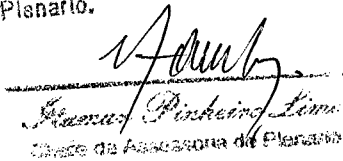 Plenario.
Itamar Pinheiro Lima
Chefe da Assessoria de Plenario